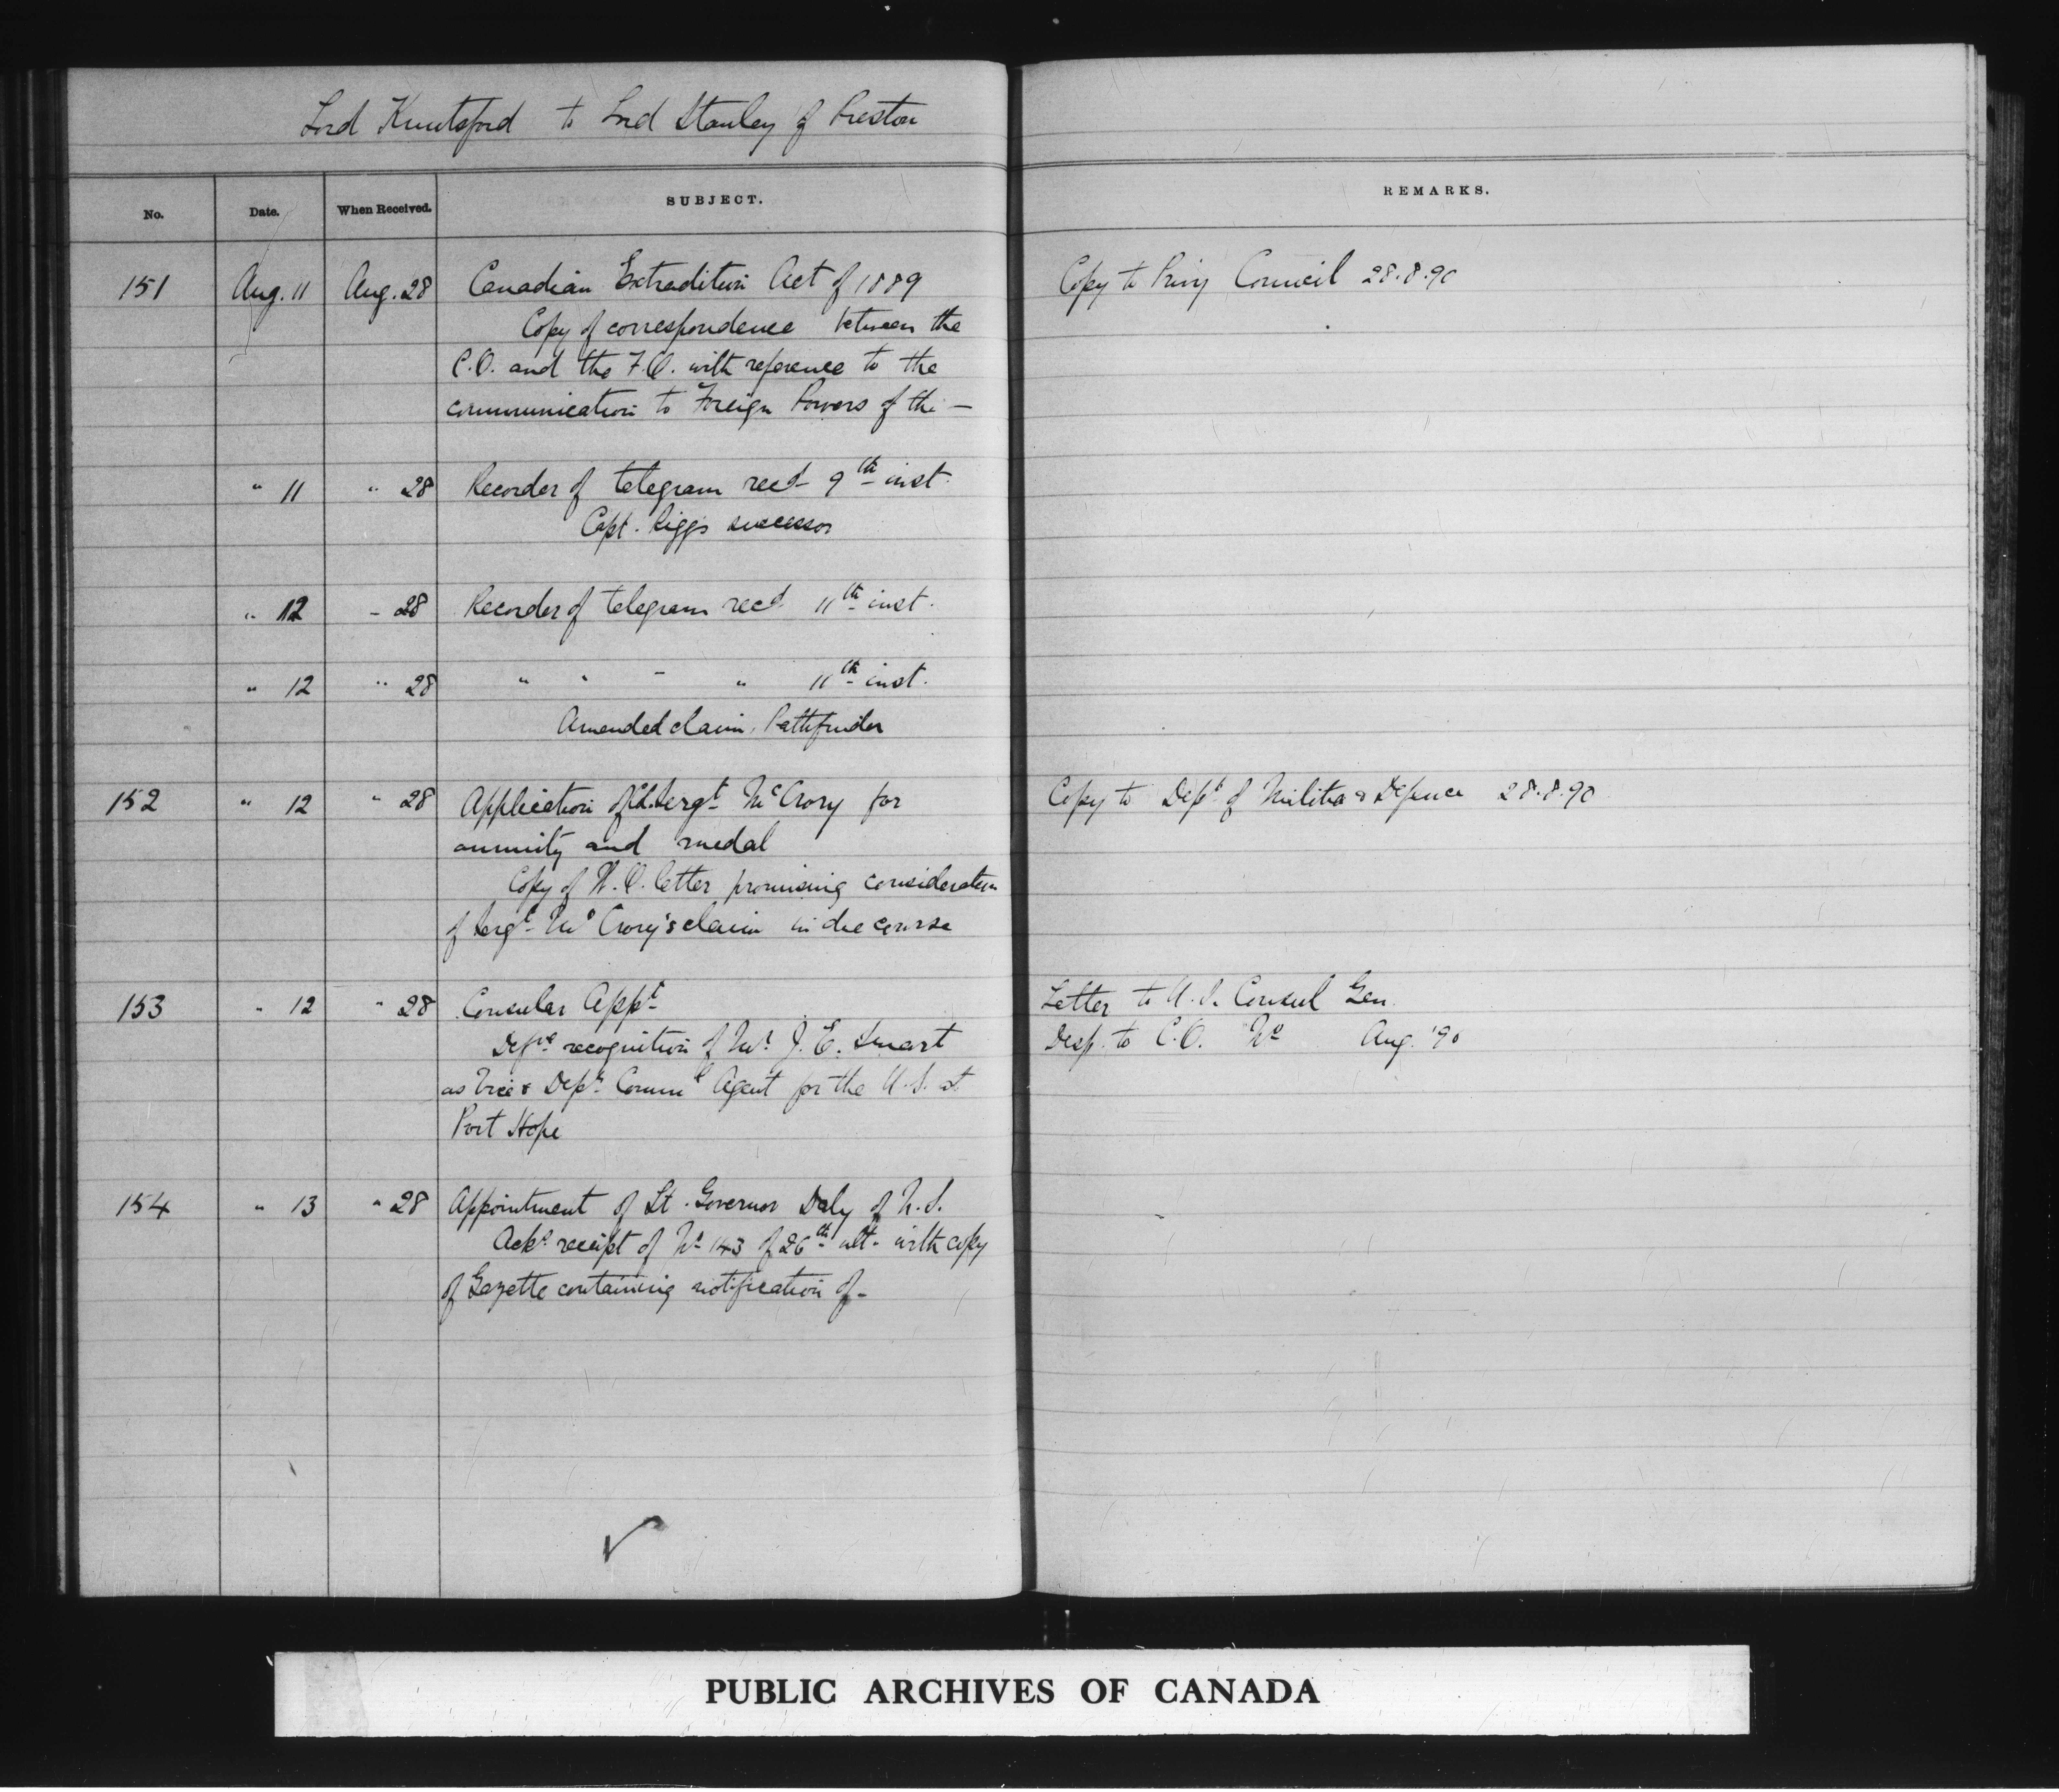 Lord Knutsford to Lord Stanley of Preston
No. Date. When Received. SUBJECT. REMARKS.
151 Aug. 11 Aug. 28 Canadian Extradition Act of 1889 Copy to Privy Council 28.8.90
Copy of correspondence between the
C.O. and the F.O. with reference to the
communication to Foreign Powers of the —
" 11 " 28 Recorder of telegram recd 9th inst.
Capt. Riggs successor
" 12 " 28 Recorder of telegram recd 11th inst.
" 12 " 28 " " " " 11th inst.
Amended claim, Pathfinder
152 " 12 " 28 Application of Sergt McCrory for Copy to Dept of Militia & Defence 28.8.90
annuity and medal
Copy of W.O. letter promising consideration
of Sergt McCrory's claim in due course
153 " 12 " 28 Consular Appt Letter to U.S. Consul Gen.
recognition of Mr J. E. Smart Desp. to C.O. No Aug. '90
as Vice & Depy Comml Agent for the U.S. at
Port Hope
154 " 13 " 28 Appointment of Lt. Governor Daly of N.S.
Ackg receipt of No 143 of 26th ult. with copy
of Gazette containing notification of —
PUBLIC ARCHIVES OF CANADA